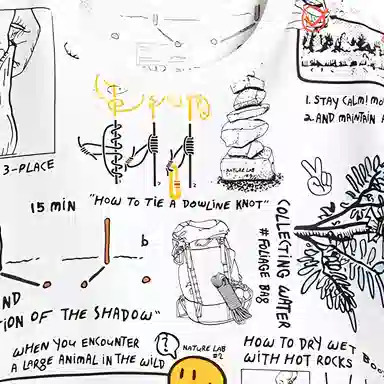 1. STAY CALM!
2. AND MAINTAIN
3-PLACE
NATURE LAB
15 MIN
"HOW TO TIE A DOWLINE KNOT"
COLLECTING WATER
# FOLIAGE BAG
b
OF THE SHADOW"
WHEN YOU ENCOUNTER
A LARGE ANIMAL IN THE WILD
?
NATURE LAB
#2
HOW TO DRY WET
WITH HOT ROCKS